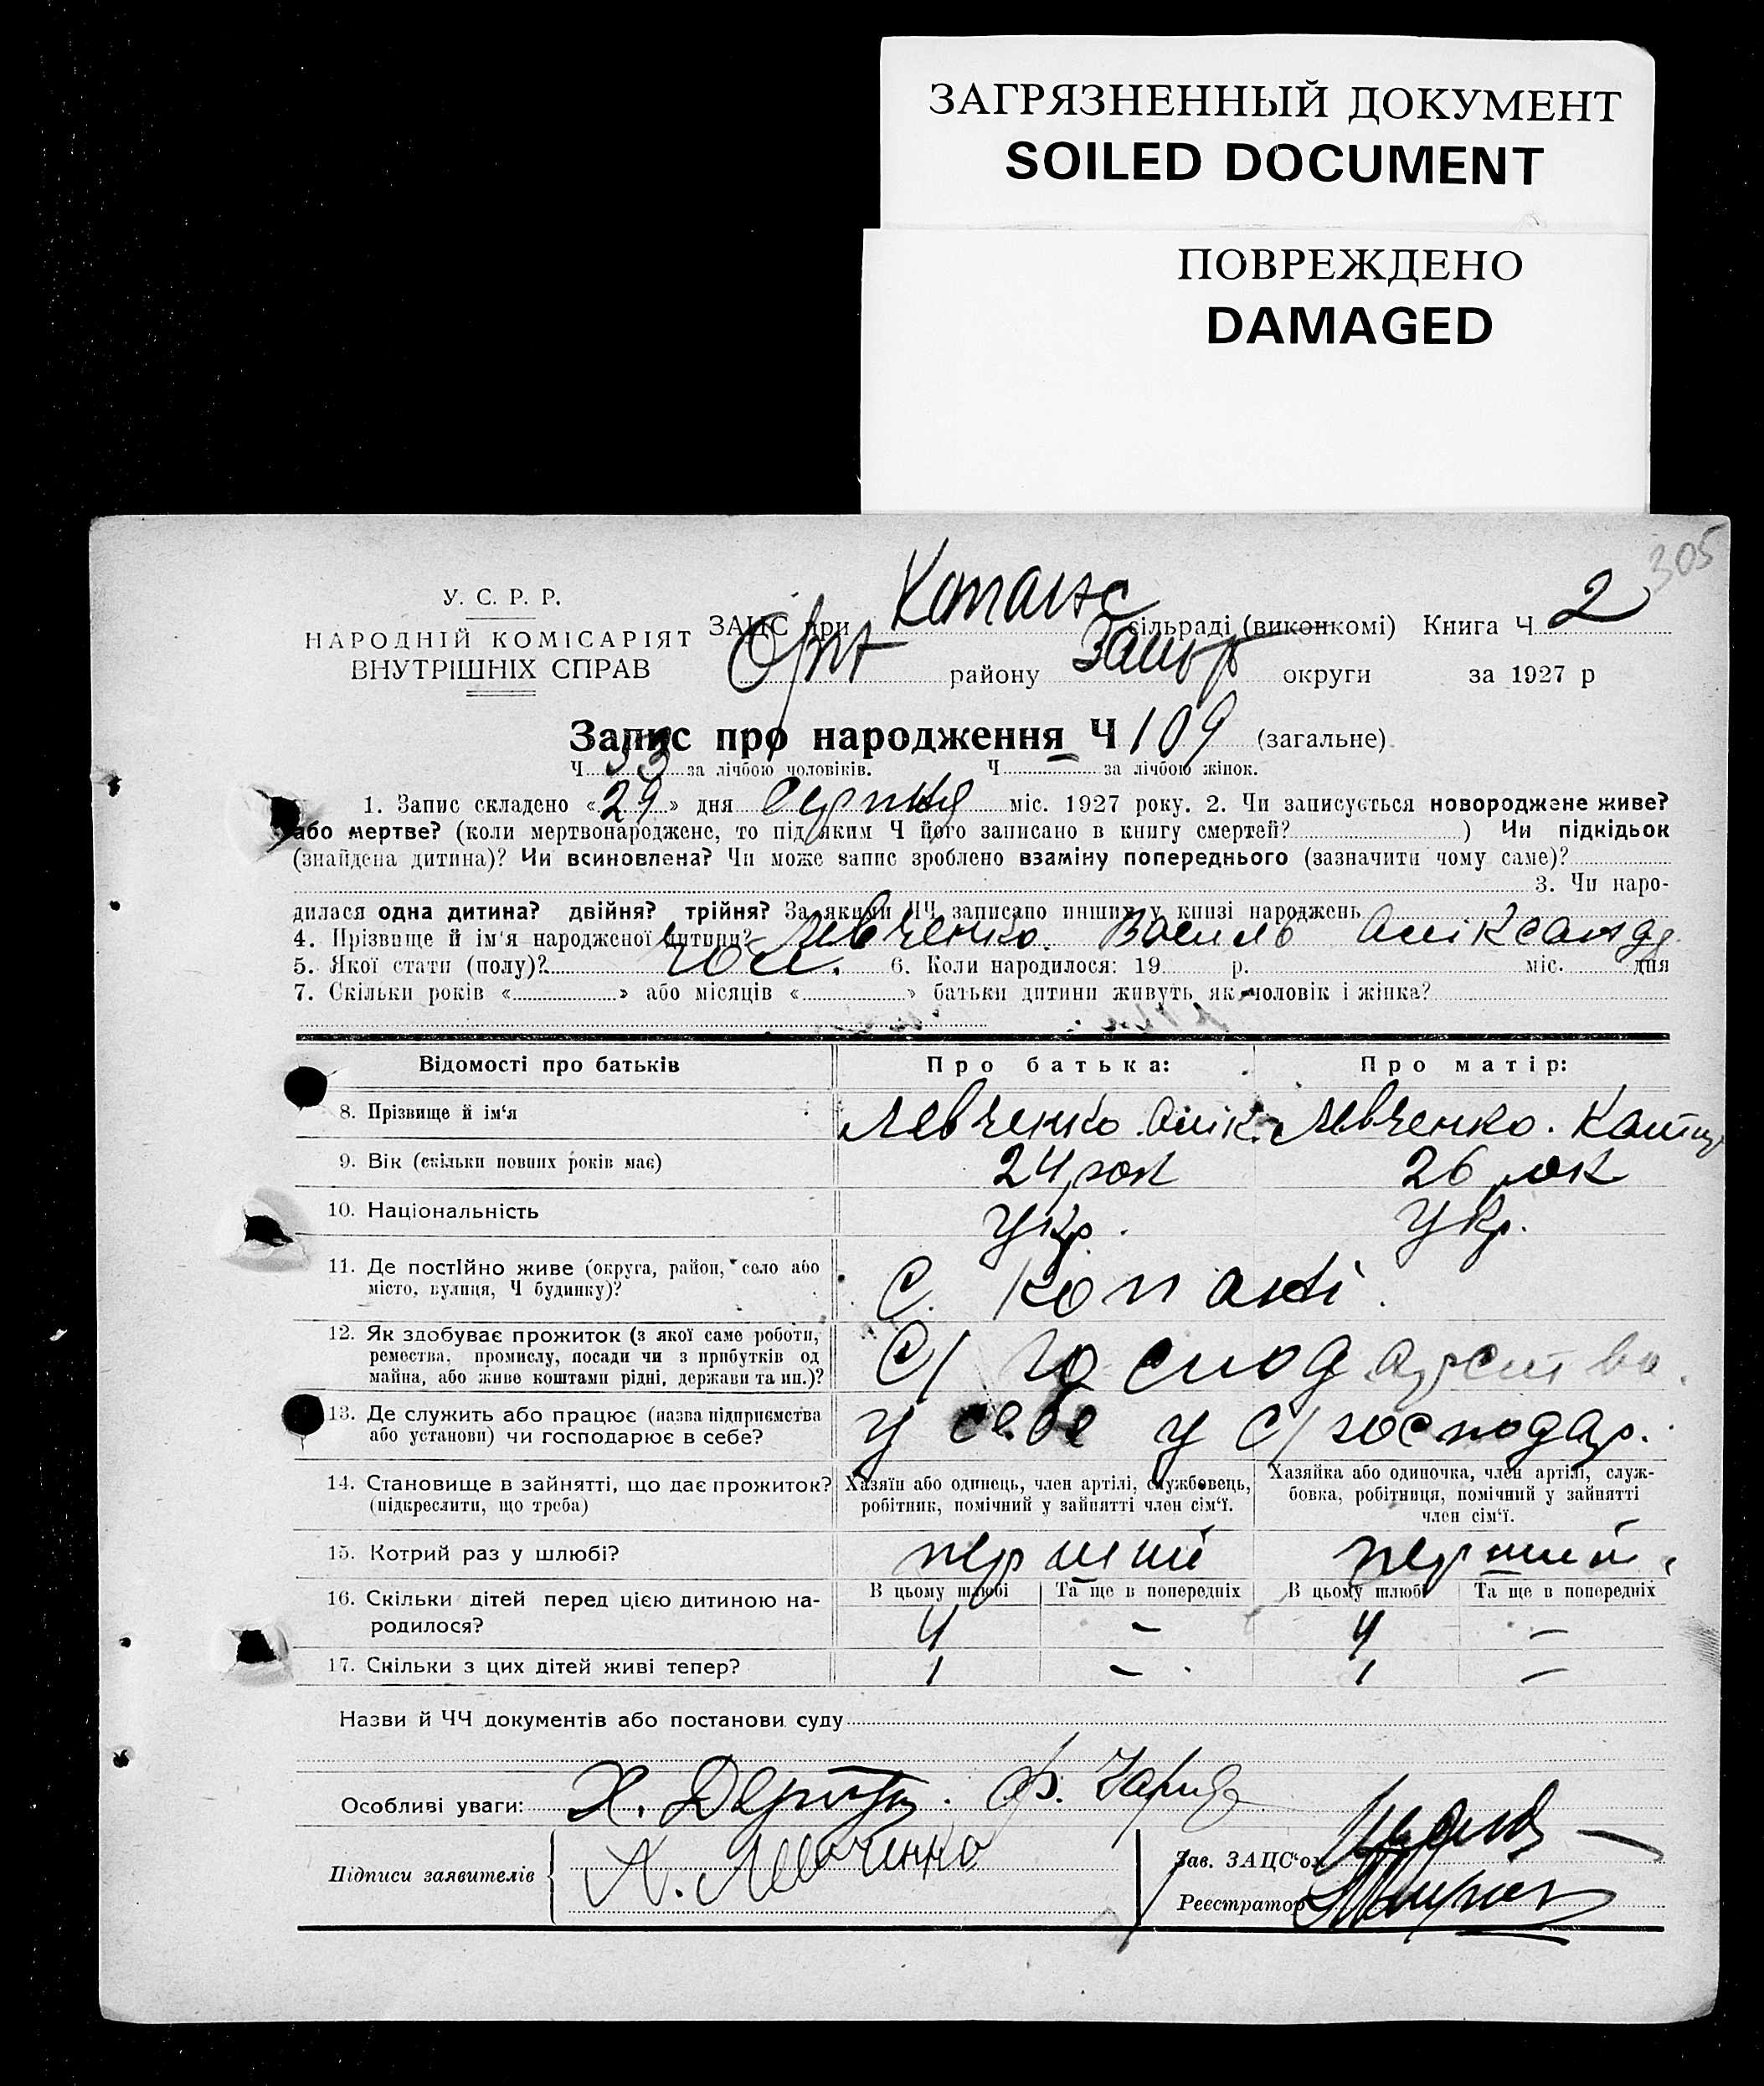 ЗАГРЯЗНЕННЫЙ ДОКУМЕНТ
SOILED DOCUMENT
ПОВРЕЖДЕНО
DAMAGED
305
У. С. Р. Р.
НАРОДНІЙ КОМІСАРІЯТ
ВНУТРІШНІХ СПРАВ
ЗАЦС при Копанс сільраді (виконкомі) Книга Ч 2
Оріх району Запор округи за 1927 р
Запис про народження Ч 109 (загальне)
Ч 53 за лічбою чоловіків. Ч — за лічбою жінок.
1. Запис складено «29» дня серпня міс. 1927 року. 2. Чи записується новороджене живе?
або мертве? (коли мертвонароджене, то під яким Ч його записано в книгу смертей? ) Чи підкідьок
(знайдена дитина)? Чи всиновлена? Чи може запис зроблено взаміну попереднього (зазначити чому саме)?
3. Чи наро-
дилася одна дитина? двійня? трійня? За якими ЧЧ записано инших у книзі народжень
4. Прізвище й ім'я народженої дитини? Левченко Василь Оліксандр
5. Якої стати (полу)? чол. 6. Коли народилося: 19 р. міс. дня
7. Скільки років « » або місяців « » батьки дитини живуть як чоловік і жінка?
Відомості про батьків Про батька: Про матір:
8. Прізвище й ім'я Левченко Олік. Левченко. Катер
9. Вік (скільки повних років має) 24 рок 26 рок
10. Національність Укр. Укр.
11. Де постійно живе (округа, район, село або
місто, вулиця, Ч будинку)? С. Копані.
12. Як здобуває прожиток (з якої саме роботи,
ремества, промислу, посади чи з прибутків од
майна, або живе коштами рідні, держави та ин.)? С/господарство.
13. Де служить або працює (назва підприємства
або установи) чи господарює в себе? у себе у с/господар.
14. Становище в зайнятті, що дає прожиток?
(підкреслити, що треба)
Хазяїн або одинець, член артілі, службовець,
робітник, помічний у зайнятті член сім'ї.
Хазяйка або одиночка, член артілі, служ-
бовка, робітниця, помічний у зайнятті
член сім'ї.
15. Котрий раз у шлюбі? перший перший
В цьому шлюбі Та ще в попередніх В цьому шлюбі Та ще в попередніх
16. Скільки дітей перед цією дитиною на-
родилося? 4 – 4 –
17. Скільки з цих дітей живі тепер? 1 – 1 –
Назви й ЧЧ документів або постанови суду
Особливі уваги: Х. Ф.
Підписи заявителів Левченко
Зав. ЗАЦС'ом
Реєстратор